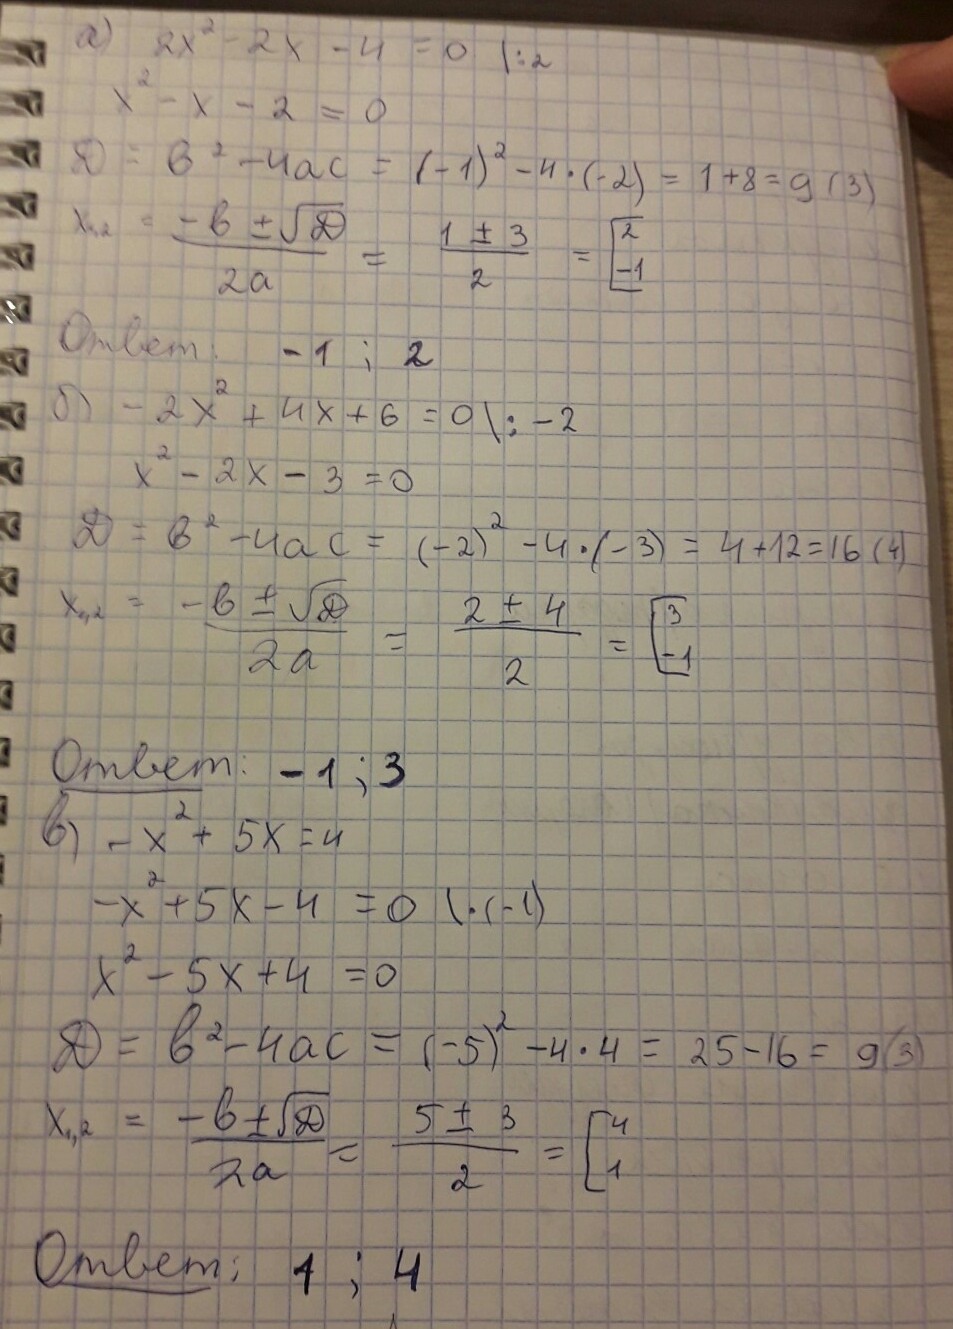 а) 2x² - 2x - 4 = 0 \:2
x² - x - 2 = 0
D = b² - 4ac = (-1)² - 4·(-2) = 1+8 = 9 (3)
x₁,₂ = (-b ± √D)/2a = (1 ± 3)/2 = [2 -1
Ответ: -1 ; 2
б) -2x² + 4x + 6 = 0 \: -2
x² - 2x - 3 = 0
D = b² - 4ac = (-2)² - 4·(-3) = 4+12 = 16 (4)
x₁,₂ = (-b ± √D)/2a = (2 ± 4)/2 = [3 -1
Ответ: -1 ; 3
в) -x² + 5x = 4
-x² + 5x - 4 = 0 \·(-1)
x² - 5x + 4 = 0
D = b² - 4ac = (-5)² - 4·4 = 25 - 16 = 9(3)
x₁,₂ = (-b ± √D)/2a = (5 ± 3)/2 = [4 1
Ответ: 1 ; 4